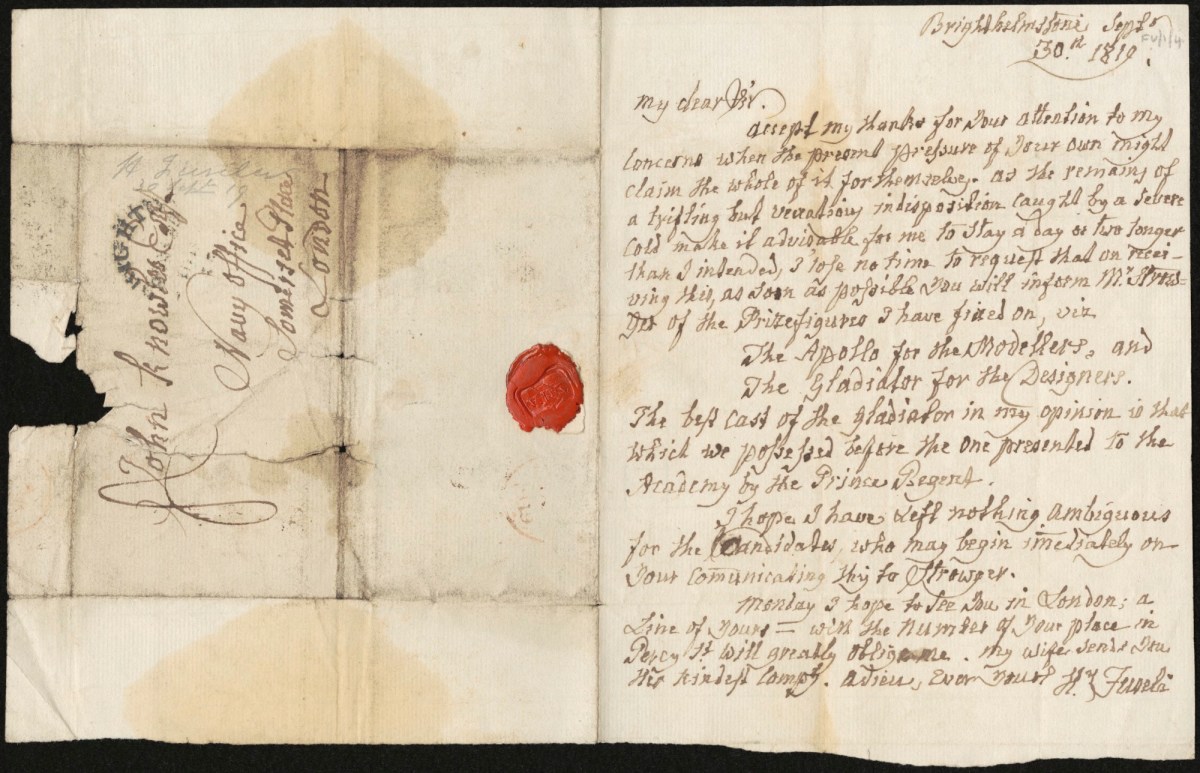 Brighthelmstone Septr
30.th 1819.
my dear Sir.
accept my thanks for Your attention to my
Concerns when the present pressure of Your own might
claim the whole of it for themselve. as the remains of
a trifling but vexatious indisposition caught by a severe
Cold make it advisable for me to stay a day or two longer
than I intended, I lose no time to request that on recei-
ving this, as soon as possible You will inform Mr. Strow-
ger of the Prizefigures I have fixed on, viz
The Apollo for the Modellers, and
The Gladiator for the Designers.
The best cast of the Gladiator in my opinion is that
which we possessed before the one presented to the
Academy by the Prince Regent.
I hope I have Left nothing ambiguous
for the Candidates, who may begin imediately on
Your Comunicating this to Strowger.
Monday I hope to see You in London; a
Line of Yours — with the number of Your place in
Percy St. will greatly oblige me. my wife sends You
Her kindest Compts. adieu, Ever Yours Hy Fuseli
John Knowles Esqr.
Navy office
Somerset Place
London
FU/1/4